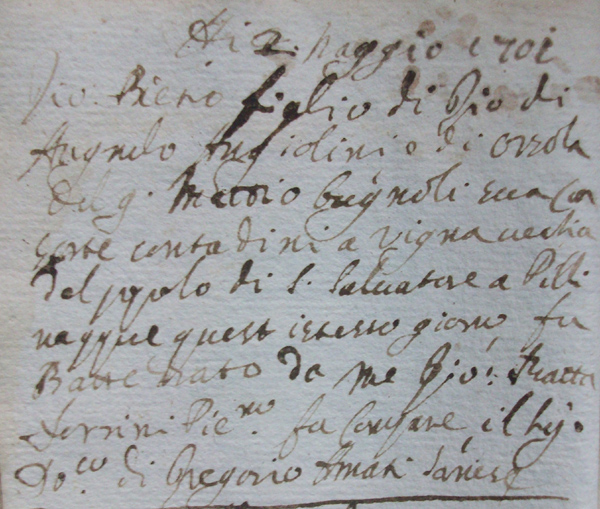 Ai 2. Maggio 1701
Gio: Pietro figlio di Gio di
Angiolini e di Orsola
del q. Matteo sua Con
sorte contadini a Vigna vechia
del popolo di S. Salvatore a Pilli
nacque quest istesso giorno fu
Battezzato da me Gio: Batta
Pie.no fu Compare il Sig.
Do.co di Gregorio Amati Sanese